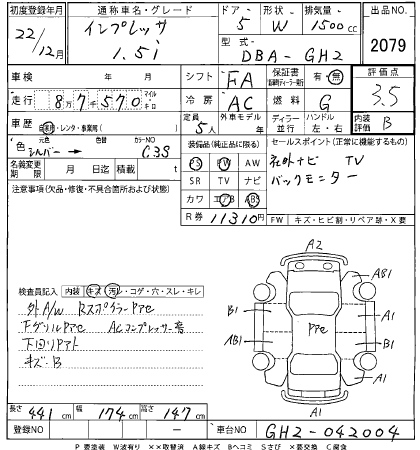 初度登録年月 通称車名・グレード ドア 形状 排気量 出品NO.
22/12月 インプレッサ 1.5i 5 W 1500cc 2079
型式 DBA-GH2
車検 年 月 シフト FA 保証書 有・無 評価点
走行 8万7千570 マイル キロ 冷房 AC 燃料 G 3.5
車歴 自家用・レンタ・事業用( ) 定員 5人 外車モデル 年 ディーラー 並行 ハンドル 左・右 内装評価 B
色 元色 シルバー → 色替 カラーNO C3S 装備品(純正品に限る) セールスポイント(正常に機能するもの)
名義変更期限 月 日迄 積載 t PS PW AW 社外ナビ TV
注意事項(欠品・修復・不具合箇所および状態) SR TV ナビ バックモニター
カワ エアB ABS
R券 11310円 FW キズ・ヒビ割・リペア跡・X要
A2
AB1
B1 A1
Pアe
AB1 B1
A1
A1
検査員記入 内装 キズ・汚レ・コゲ・穴・スレ・キレ
外A/W Rスポイラーアe
下グリルアe ACコンプレッサー音
下回りサビ
キズ・B
長さ 441cm 幅 174cm 高さ 147cm
登録NO - 車台NO GH2-042004
P要塗装 W波有り ××取替済 A線キズ Bヘコミ Sさび X要交換 C腐食